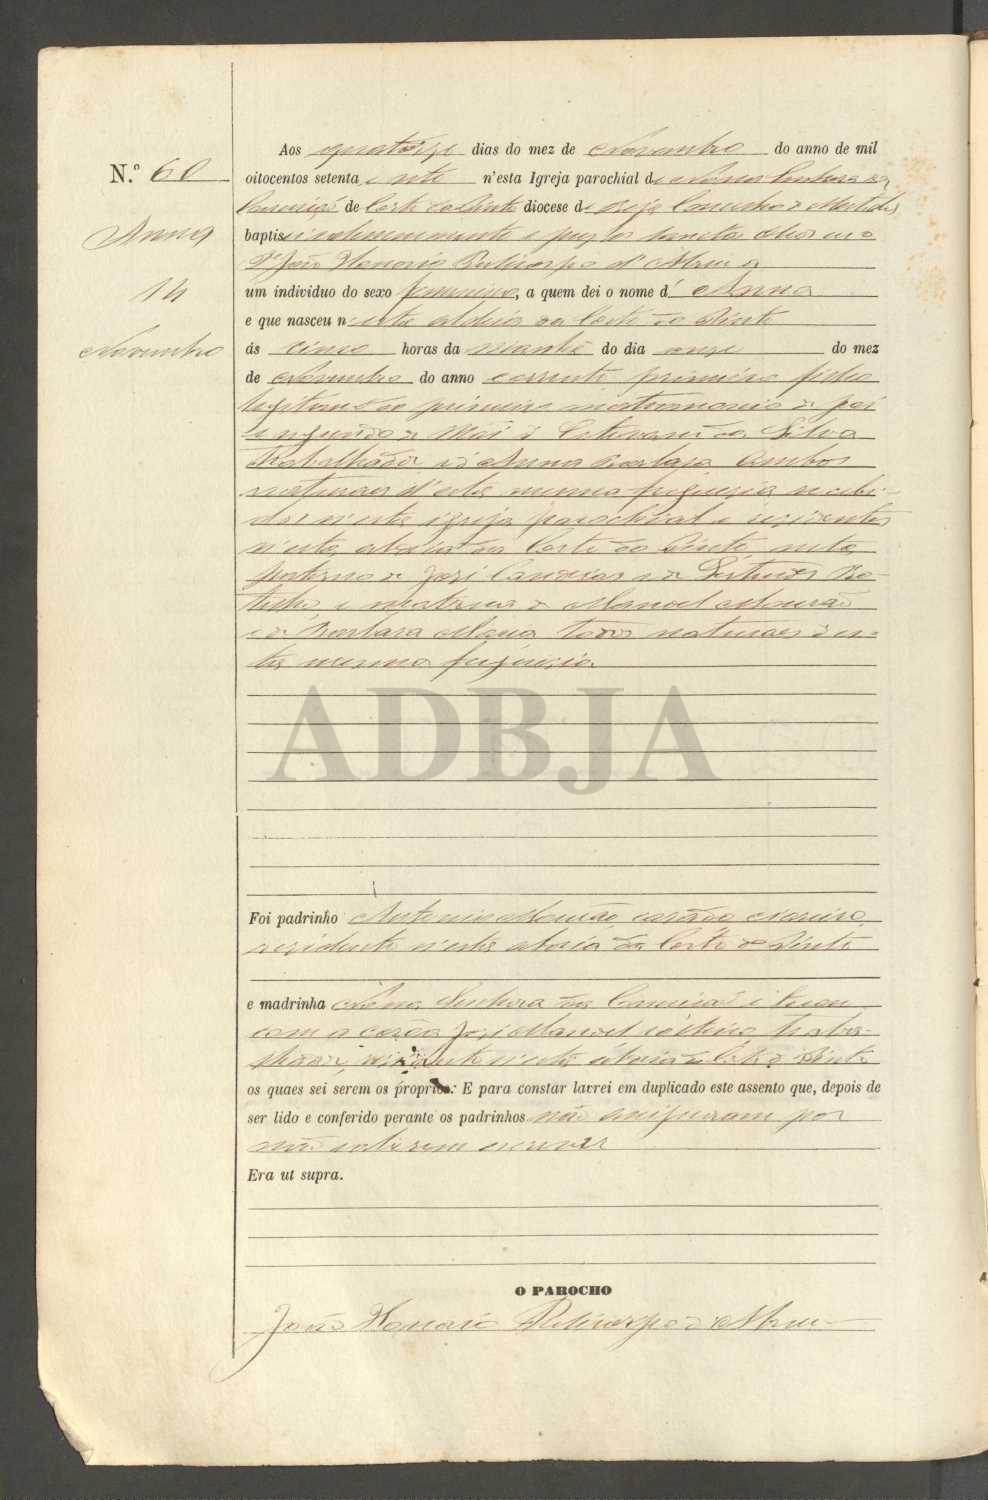 N.º 60
Anna
14
Novembro
Aos quatorze dias do mez de Novembro do anno de mil
oitocentos setenta e sete n'esta Igreja parochial de Nossa Senhora da
Conceição de Corte do Pinto diocese de Beja Concelho de Mertola
baptisei solemnemente e puz os sanctos oleos eu o
P.e João Honorio Policarpo d'Abreu a
um individuo do sexo femenino, a quem dei o nome d' Anna
e que nasceu n'esta aldeia da Corte do Pinto
ás cinco horas da manhã do dia onze do mez
de Novembro do anno corrente primeira filha
legitima do primeiro matrimonio do pai
e segundo da Mãi de Estevão da Silva
Trabalhador e de Anna Barbara ambos
naturaes d'esta mesma freguesia recebi-
dos n'esta igreja parochial e residentes
n'esta aldeia da Corte do Pinto, neta
paterna de José Candeias e de Gertrudes
e materna de Manoel Mourão
e de Barbara Maria todos naturaes d'es-
ta mesma freguesia.
ADBJA
Foi padrinho Antonio Mourão, casado
residente n'esta aldeia da Corte do Pinto
e madrinha Nossa Senhora da Conceição e tocou
com a corôa José Manoel traba-
lhador, residente n'esta aldeia da Corte do Pinto
os quaes sei serem os proprios: E para constar lavrei em duplicado este assento que, depois de
ser lido e conferido perante os padrinhos não assignaram por
não saberem escrever
Era ut supra.
O PAROCHO
João Honorio Policarpo d'Abreu